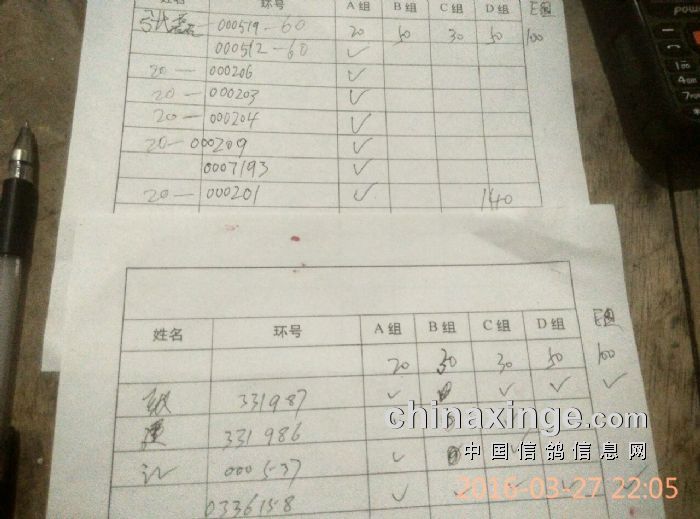 姓名 环号 A组 B组 C组 D组 E组
000519-60 20 50 30 50 100
000512-60 ✓
20- 000206 ✓
20- 000203 ✓
20- 000204 ✓
20-000209 ✓
0007193 ✓
20- 000201 ✓ 140
姓名 环号 A组 B组 C组 D组 E组
20 30 30 50 100
331987 ✓ ✓ ✓ ✓
331986 ✓
000537 ✓ ✓
0336158 ✓ ✓
chinaxinge.com
中国信鸽信息网
2016-03-27 22:05
power